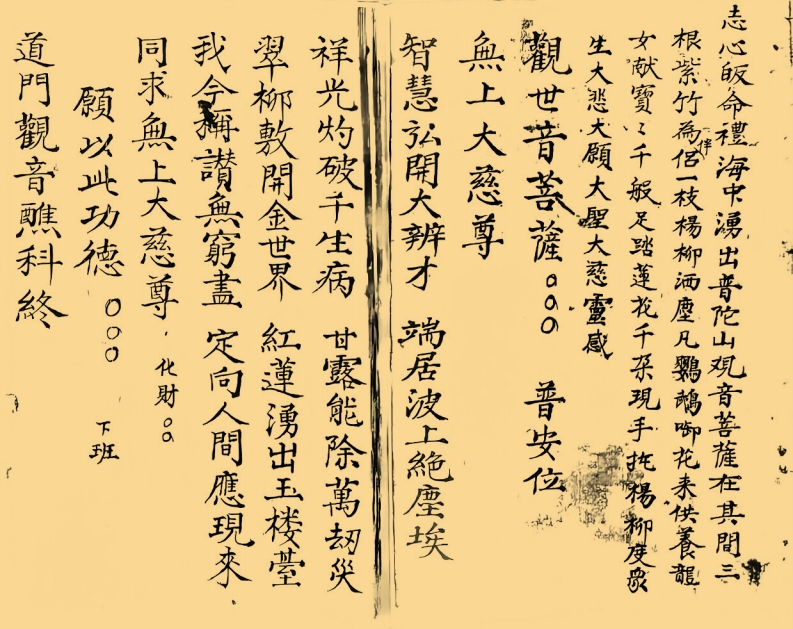 志心皈命禮海中湧出普陀山观音菩薩在其間三
根紫竹為伴侣一枝楊柳洒塵凡鸚鵡啣花来供養龍
女献寶〻千般足踏蓮花千朶現手托楊柳度衆
生大悲大願大聖大慈靈感
觀世音菩薩 普安位
無上大慈尊
智慧弘開大辨才 端居波上絶塵埃
祥光灼破千生病 甘露能除萬刼災
翠柳敷開金世界 紅蓮湧出玉楼臺
我今稱讃無窮盡 定向人間應現来
同求無上大慈尊 化財
願以此功德 下班
道門觀音醮科終